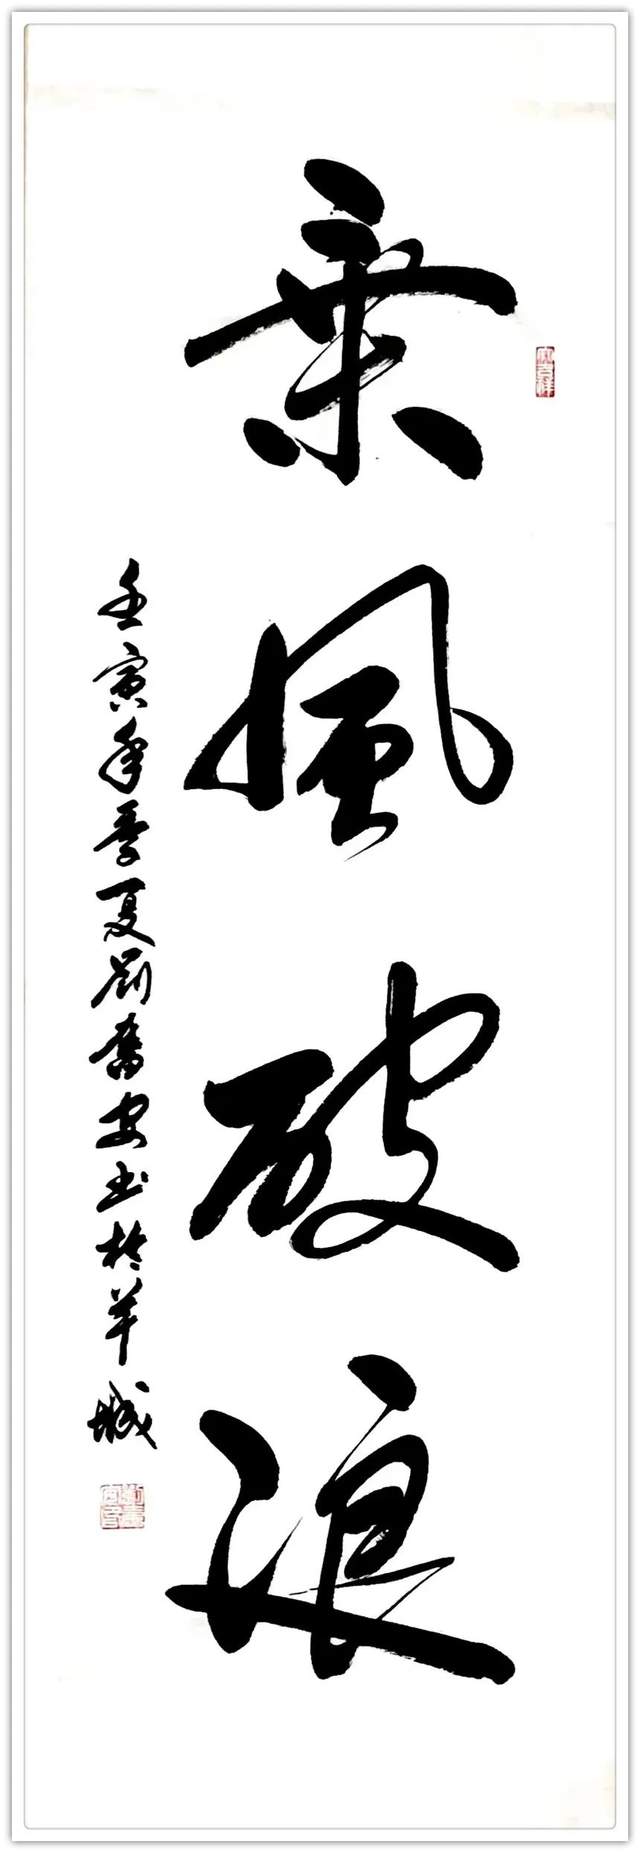 乗風破浪
壬寅年季夏劉奮安书於羊城